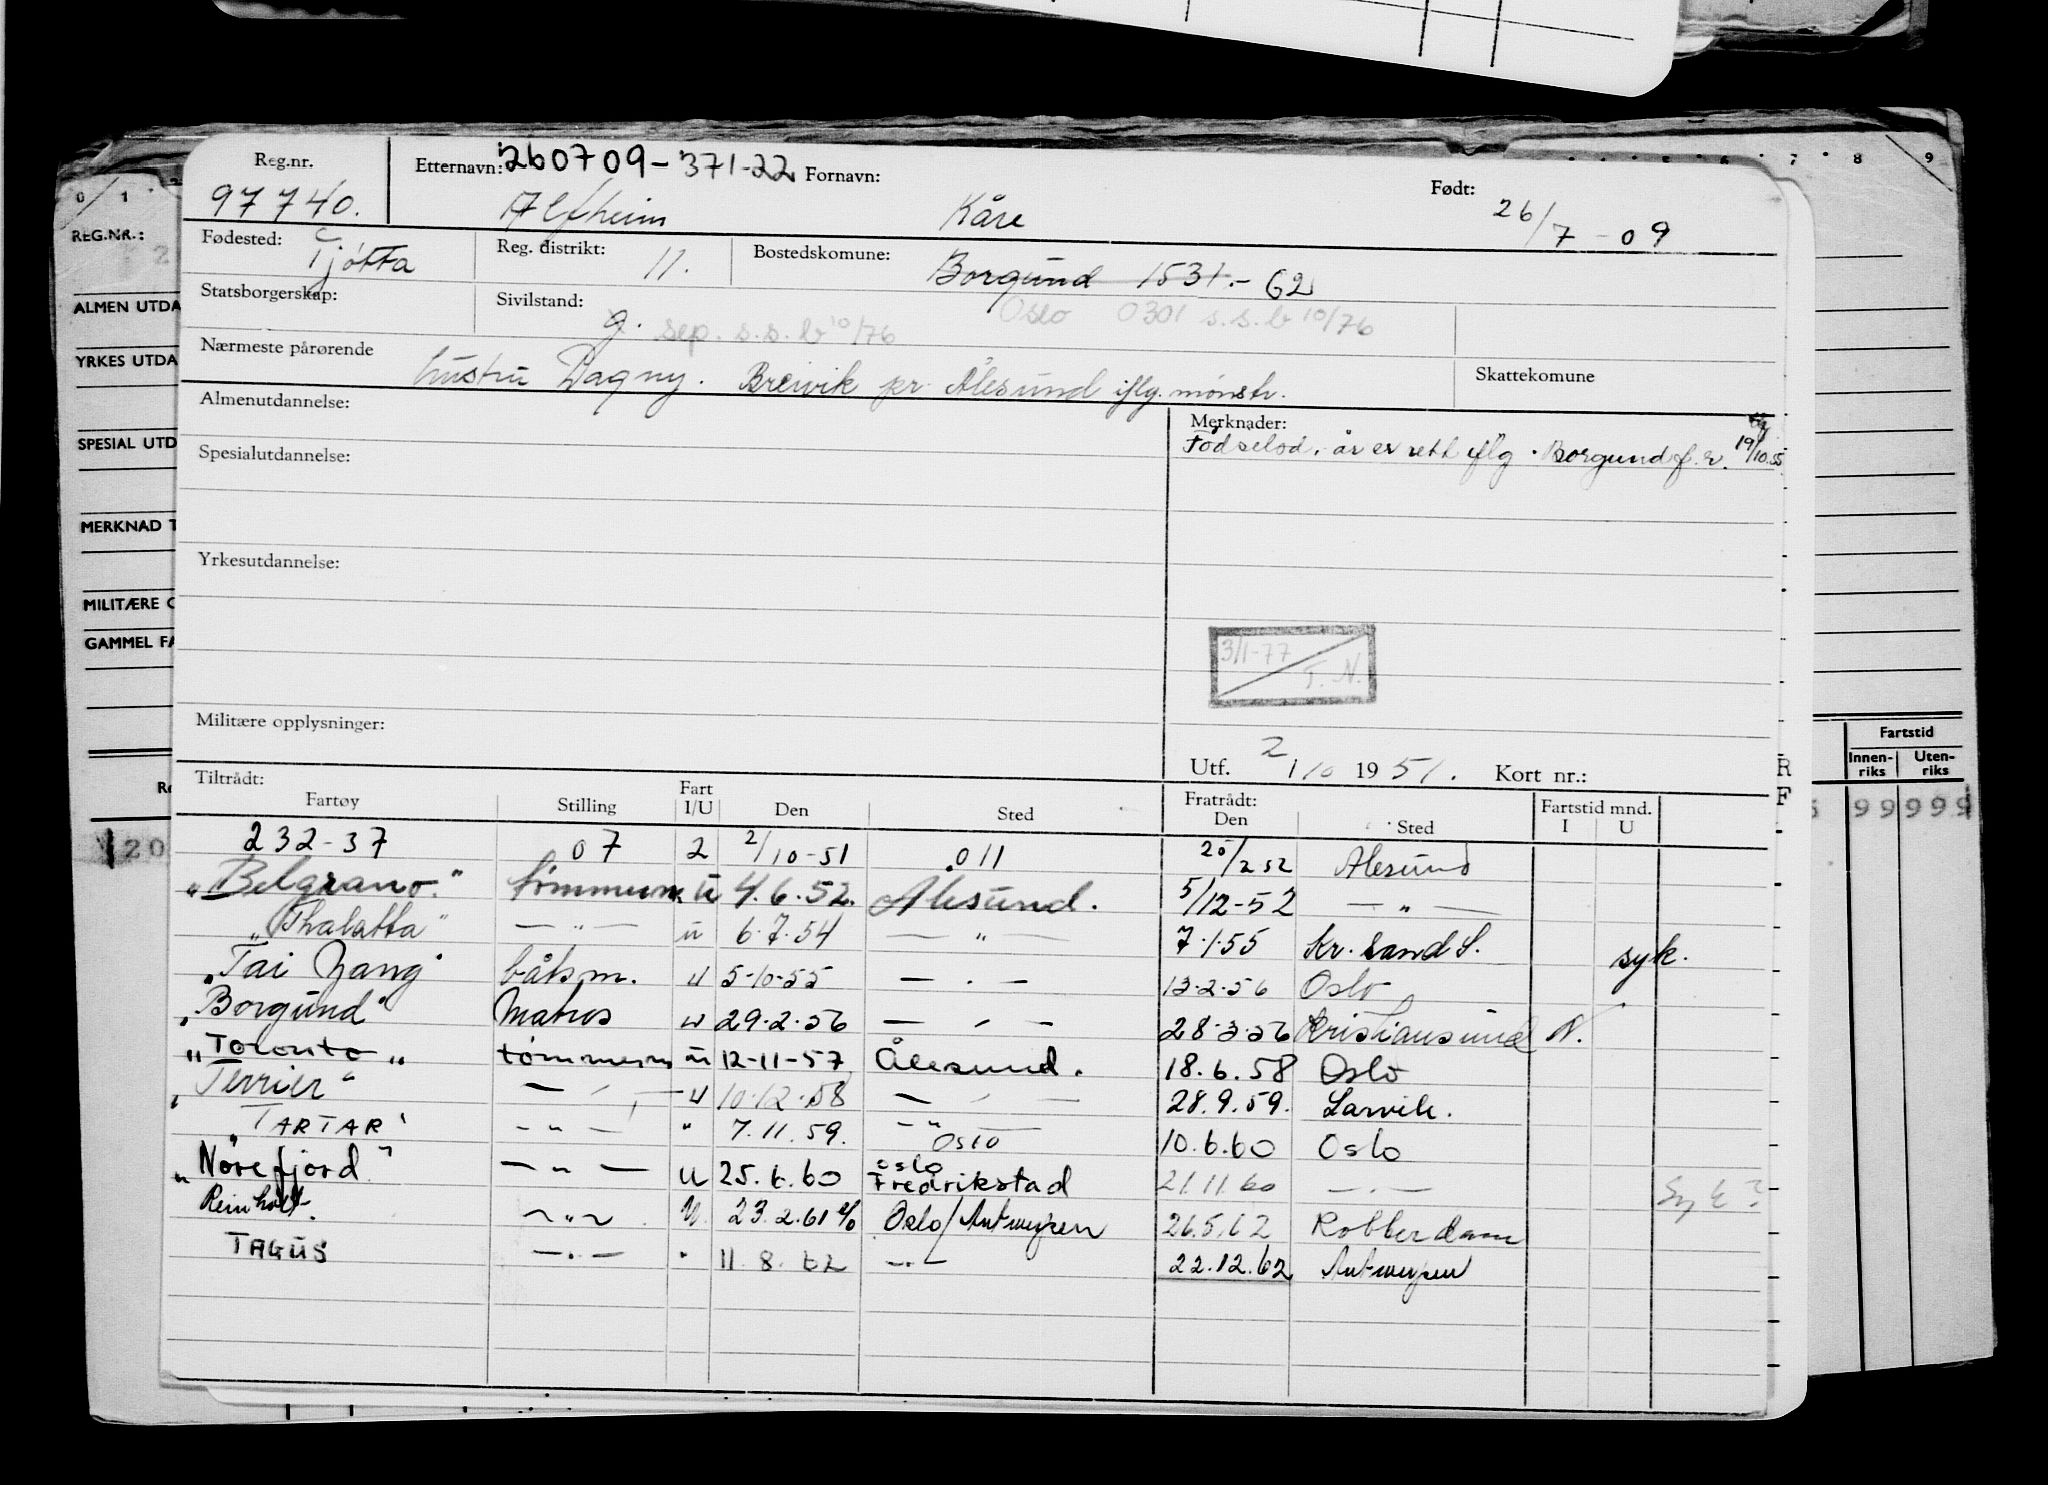 0 / 1 5 6 7 8 9
Reg.nr. Etternavn: 260709-371-22 Fornavn: Født:
97740. Alfheim Kåre 26/7-09
REG.NR.:
Fødested: Tjøtta Reg. distrikt: 11. Bostedskomune: Borgund 1531.- 62
Oslo 0301 s.s.b 10/76
Statsborgerskap: Sivilstand: g. sep. s.s.b 10/76
ALMEN UTDA
Nærmeste pårørende hustru Dagny. Breivik pr. Ålesund iflg. mønstr. Skattekomune
YRKES UTDA
Almenutdannelse: Merknader:
Fødselsd. år er rett iflg. Borgund f.r. 19/10.55
SPESIAL UTD
Spesialutdannelse:
MERKNAD T
Yrkesutdannelse:
MILITÆRE O
GAMMEL FA
3/1-77 T.N.
Militære opplysninger:
Utf. 2/10 1951. Kort nr.:
Tiltrådt: Fratrådt: Fartstid mnd.
Fartøy Stilling Fart I/U Den Sted Den Sted I U
R
F
Fartstid
Innen- riks Uten- riks
20
99 999
232-37 07 2 2/10-51 011 25/2 52 Ålesund
"Belgrano." tømmerm. u 4.6.52. Ålesund. 5/12-52 — " —
"Thalatta" — " — u 6.7.54 — " — 7.1.55 Kr.sand S. syk.
"Tai Yang" båtsm. u 5-10-55 — " — 13.2.56 Oslo
"Borgund" Matros u 29.2.56 — " — 28.3.56 Kristiansund N.
"Toronto" tømmerm u 12-11-57 Ålesund. 18.6.58 Oslo
"Terrier" — " — u 10.12.58 — " — 28.9.59. Larvik.
"TARTAR" — " — " 7.11.59. — " — Oslo 10.6.60 Oslo
"Norefjord" — " — u 25.6.60 Oslo Fredrikstad 21.11.60 — " — Syk?
Reinholt. — " — u. 23.2.61 Oslo/Antwerpen 26.5.62 Rotterdam
TAGUS — " — " 11.8.62 — " — 22.12.62 Antwerpen